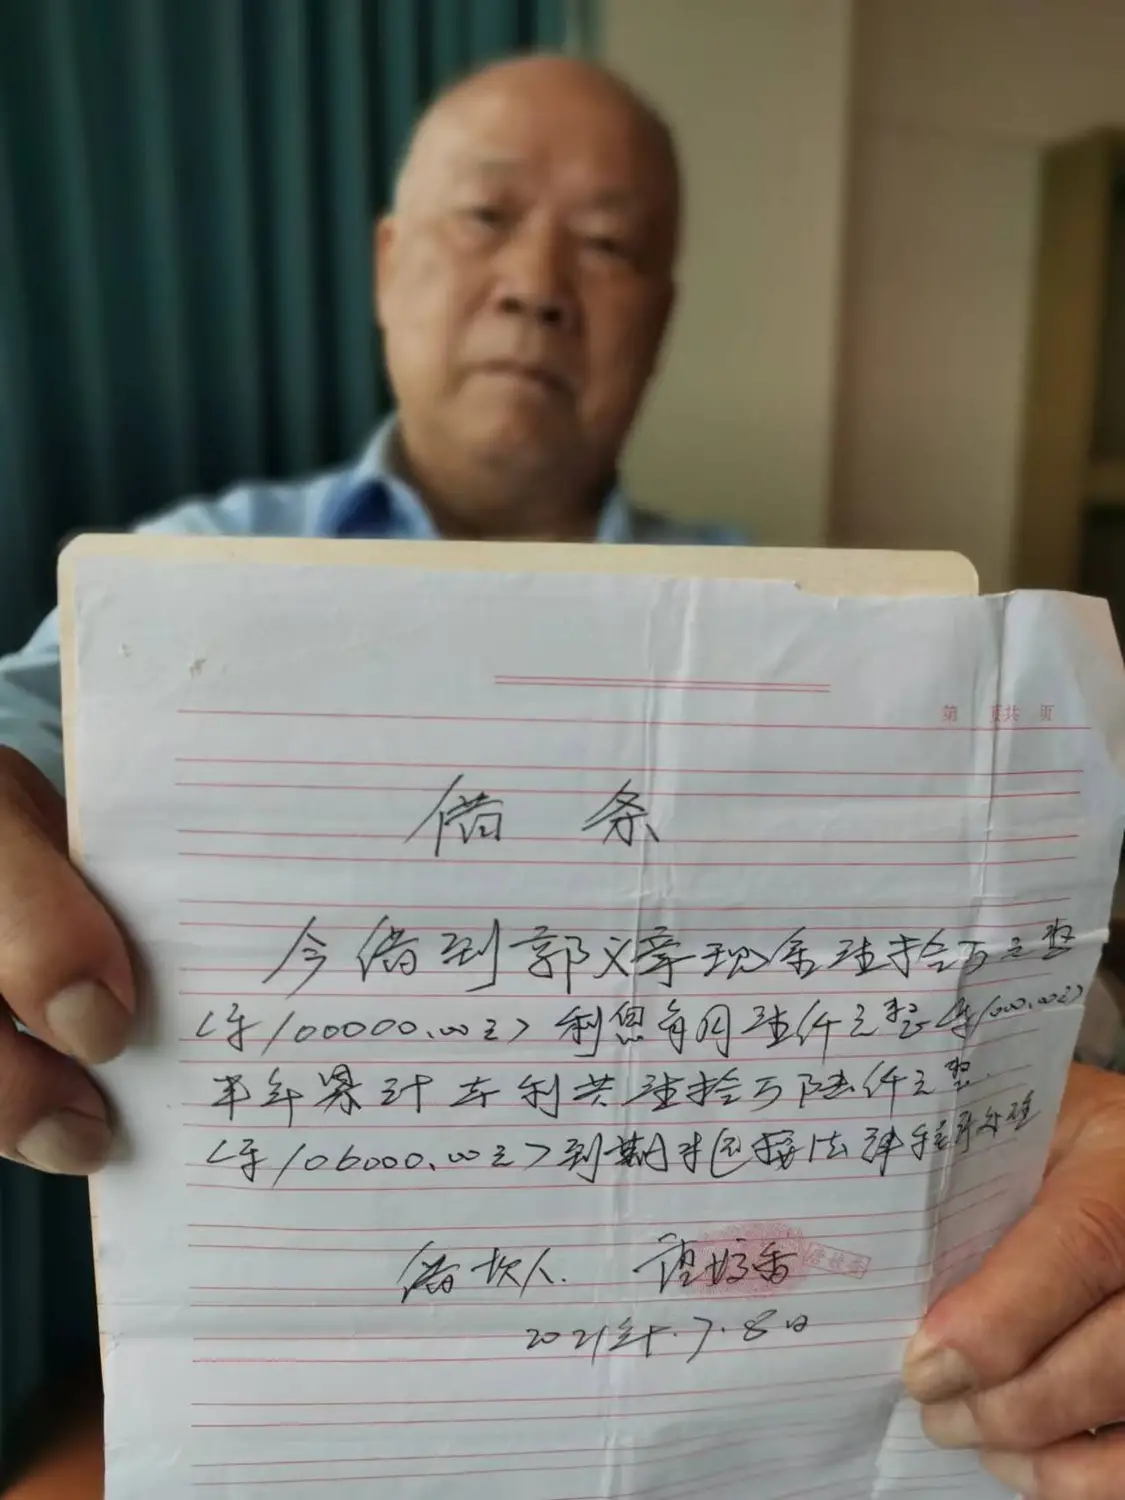 第 页共 页
借 条
今借到郭义章现金壹拾万元整
<¥100000.00元>利息每月壹仟元整<¥1000.00元>
半年累计本利共壹拾万陆仟元整.
<¥106000.00元>到期未还按法律程序处理
借款人.
2021年.7.8日